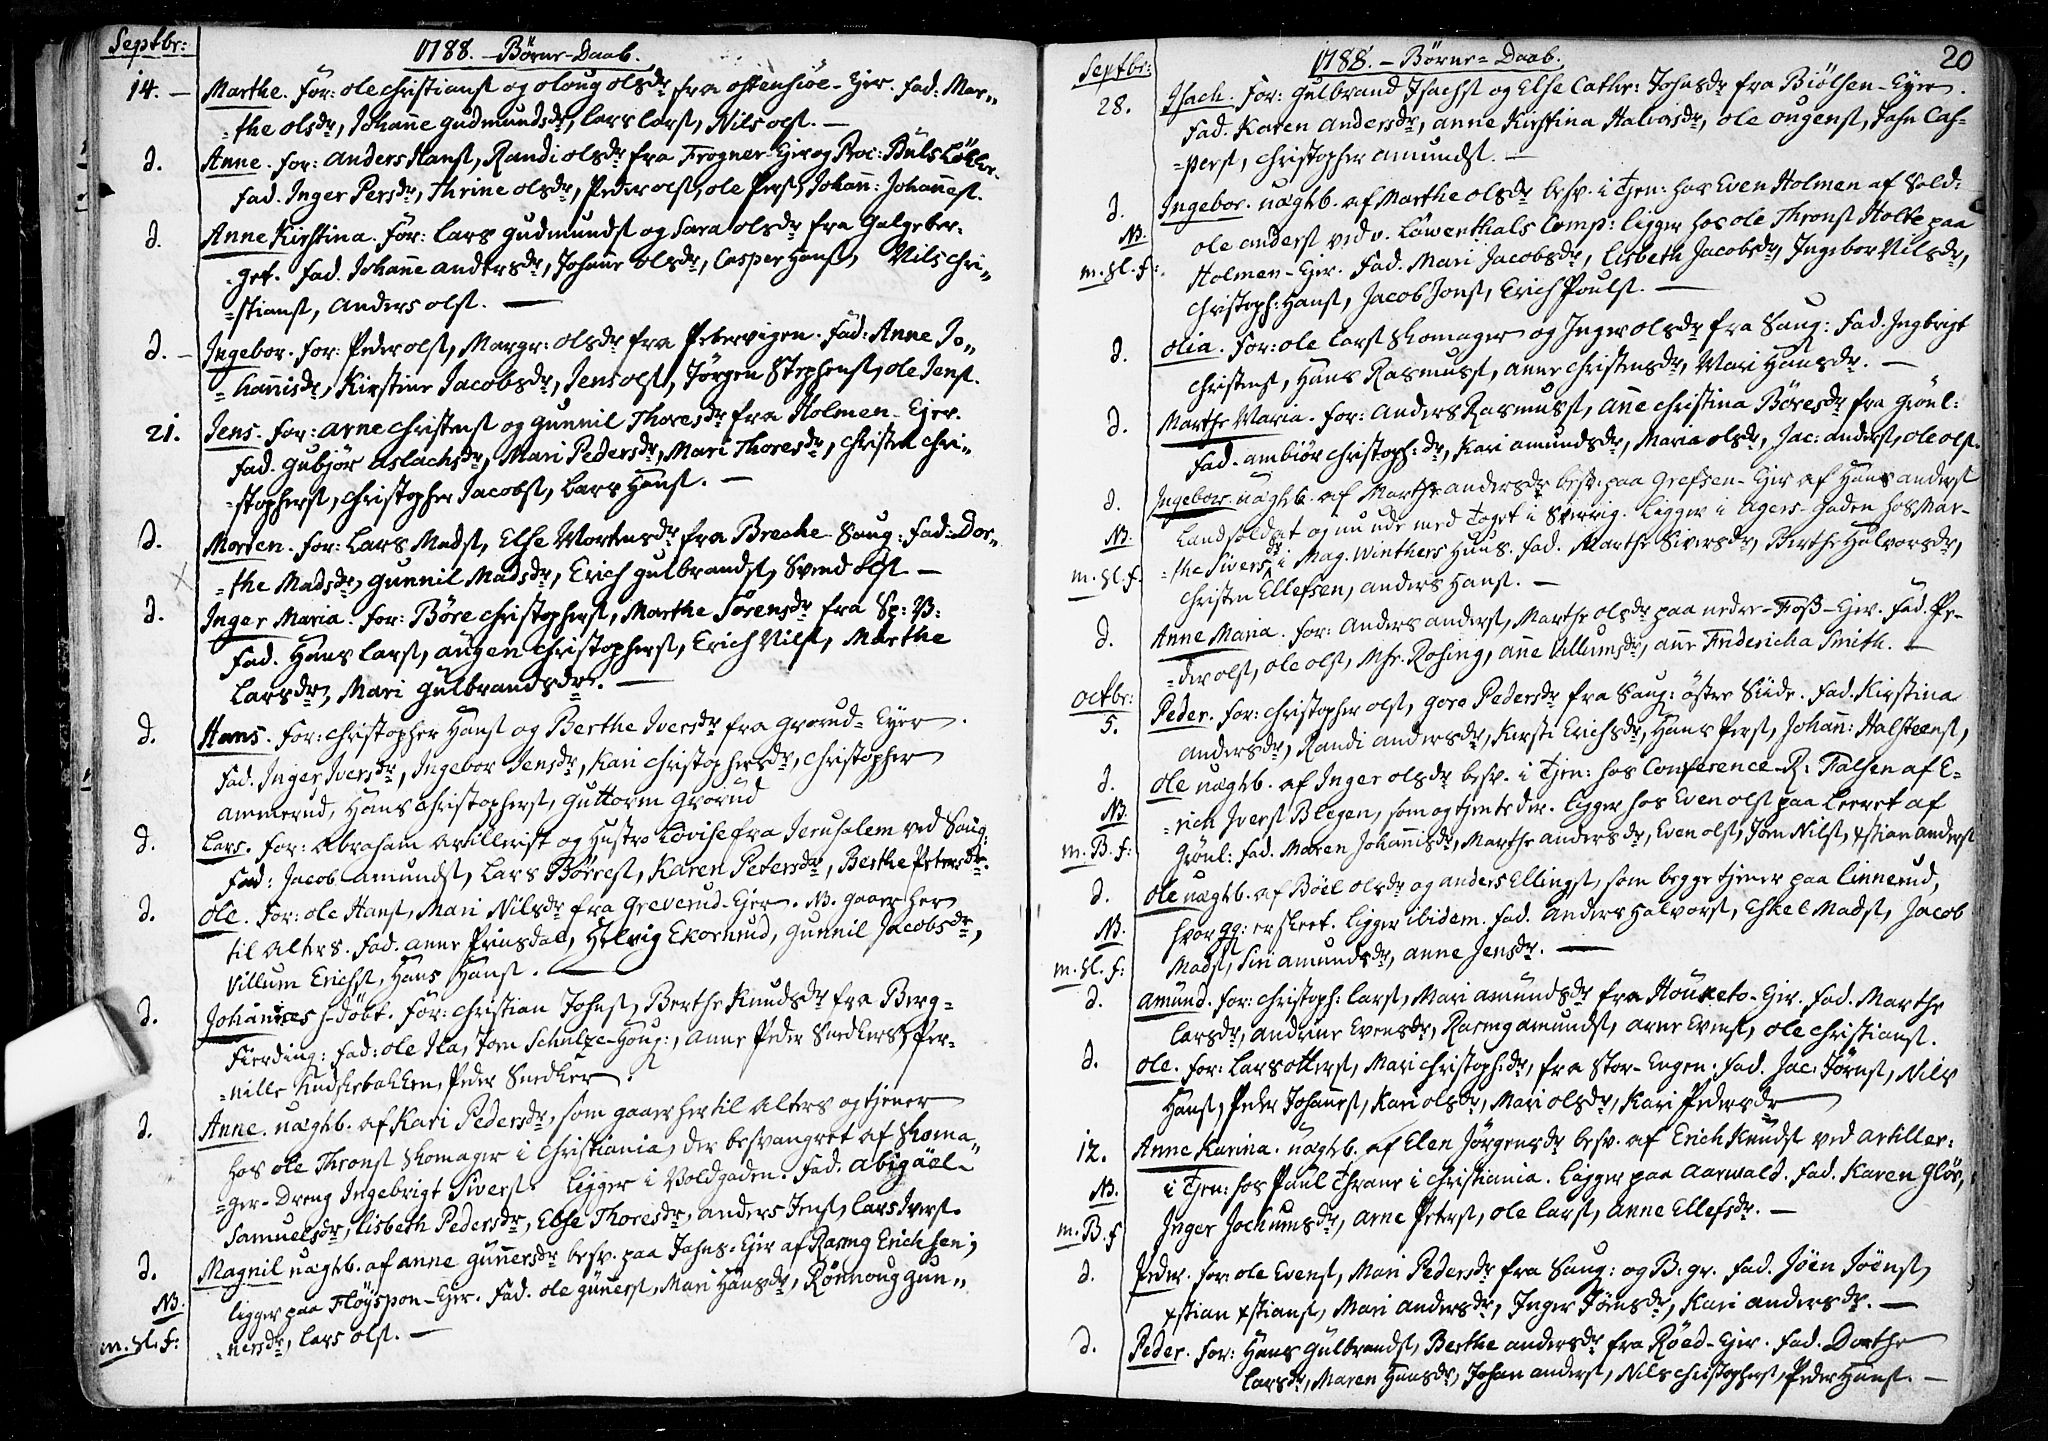 Septbr: 1788. - Börne-Daab.
14. - Marthe. For: ole Christianst og oloug olsdr fra ostensiöe-Eier. Fad: Mar„
=the olsdr, Johanne Gudmundsdr, Lars Larst, Nils olst. -
d. Anne. For: Anders Hanst, Randi olsdr fra Frogner-Eier og Proc: Buls Lökke.
Fad. Inger Persdr, Thrine olsdr, Peder olst, ole Perst, Johan: Johanest.
d. Anne Kirstina. For: Lars Gudmundst og Sara olsdr fra Galgeber:
get. Fad. Johane andersdr, Johane olsdr, Casper Hanst, Nils Chri„
=stianst, Anders olst. —
d. - Ingebor. For: Peder olst, Margr: olsdr fra Petervigen. Fad: Anne Jo„
=hanisdr, Kirstine Jacobsdr, Jens olst, Jörgen Stephenst, ole Jenst.
21. Jens. For: Arne Christenst og Gunnil Thoresdr fra Holmen-Eier.
Fad. Gubjör aslachsdr, Mari Pedersdr, Mari Thoresdr, Christen Chri„
=stopherst, Christopher Jacobst, Lars Hanst. -
d. Morten. For: Lars Madst, Else Mortensdr fra Breche Saug: Fad: Dor„
=the Madsdr, Gunnil Madsdr, Erich Gulbrandst, Svend olst -
d. Inger Maria. For: Böre Christopherst, Marthe Sörensdr fra Sp: V:
Fad. Hans Larst, augen Christopherst, Erich Nilst, Marthe
Larsdr, Mari Gulbrandsdr. —
d. Hans. For: Christopher Hanst og Berthe Iversdr fra Grorud-Eyer.
Fad. Inger Iversdr, Ingebor Jensdr, Kari Christophersdr, Christopher
Ammerud, Hans Christopherst, Guttorm Grorud
d. Lars. For: Abraham Artillerist og Hustro Lovise fra Jerusalem ved Saug:
Fad: Jacob Amundst, Lars Börrest, Karen Petersdr, Berthe Petersdr.
d. Ole. For: ole Hanst, Mari Nilsdr fra Greverud-Eier. NB. gaaer her
til Alters. Fad. Anne Prinsdal, Helvig Ekornrud, Gunnil Jacobsdr,
Villum Erichst, Hans Hanst. —
d. Johannes h-döbt. For: Christian Johnst, Berthe Knudsdr fra Berg=
Fierding: Fad: ole Ila, Joen Schulze-Houg:, Anne Peder Snedkers, Per=
=nille Kudskebakken, Peder Snedker.
d. Anne. uægtb. af Kari Pedersdr, som gaaer her til Alters og tjener
hos ole Thronst Skomager i Christiania, der besvangret af Skoma„
=ger-Dreng Ingebrigt Siverst. Ligger i Voldgaden. Fad. Abigäel
Samuelsdr, Lisbeth Pedersdr, Else Thoresdr, anders Jenst, Lars Iverst.
d. Magnil uægtb. af Anne Gunersdr besv. paa Jahns-Eier af Rasmg Erichsen;
NB. ligger paa Flöyspon-Eier. Fad. ole Gunerst, Mari Hansdr, Rönnoug Gun„
m. Sl. f: =nersdr, Lars olst. -
Septbr: 1788. - Börne-Daab. 20
28. Isach. For: Gulbrand Isachst og Else Cathr: Johnsdr fra Biölsen-Eyer.
Fad. Karen andersdr, anne Kirstina Halvorsdr, ole ougenst, John Cas=
=perst, Christopher amundst. —
d. Ingebor. uægtb. af Marthe olsdr besv. i Tjen: hos Even Holmen af Sold:
NB. ole anderst ved v. Löwenthals Comp: ligger hos ole Thronst Holte paa
m. Sl. f:. Holmen-Eier. Fad. Mari Jacobsdr, Lisbeth Jacobsdr, Ingebor Nilsdr,
Christoph: Hanst, Jacob Jonst, Erich Poulst. —
d. Olia. For: ole Larst Skomager og Inger olsdr fra Saug: Fad. Ingbrigt
Christenst, Hans Rasmusst, anne Christensdr, Mari Hansdr. -
d. Marthe Maria. For: Anders Rasmusst, Anne Christina Böresdr fra Grönl:
Fad. ambiör Christoph: dr, Kari amundsdr, Maria olsdr, Jac: anderst, ole olst.
d. Ingebor uægtb. af Marthe andersdr besv. paa Grefsen-Eier af Hans anderst
NB. Landsoldat og nu ude med Toget i Sverrig. Ligger i Agers-Gaden hos Mar=
m. Sl. f. =the Siversdr i Mag. Winthers Huus. Fad. Marthe Siversdr, Berthe Halvorsdr,
Christen Ellefsen, anders Hanst. -
d. Anne Maria. For: Anders anderst, Marthe olsdr paa nedre-Foss-Eier. Fad. Pe=
=der olst, ole olst, Mfr. Rosing, Ane Villumsdr, ane Fridericha Smith. -
Octbr:
5. Peder. For: Christopher olst, Goro Pedersdr fra Saug: östre Siide. Fad. Kirstina
andersdr, Randi andersdr, Kirsti Erichsdr, Hans Perst, Johan: Halsteenst,
d. Ole uægtb. af Inger olsdr besv. i Tjen: hos Conference-R: Falsen af E=
NB. =rich Iverst Blegen, som og tjente der. Ligger hos Even olst paa Leeret af
m. B. f: Grönl: Fad. Maren Johannisdr, Marthe andersdr, Even olst, Joen Nilst, Xstian anderst
d. Ole uægtb. af Böel olsdr og anders Ellingst, som begge tjener paa Linnerud,
NB. hvor gg: er skeet. Ligger ibidem. Fad. Anders Halvorst, Eskel Madst, Jacob
m. Sl. f: Madst, Siri amundsdr, anne Jensdr. —
d. Amund. For: Christoph: Larst, Mari amundsdr fra Houketo-Eier. Fad. Marthe
Larsdr, andrine Evensdr, Rasmg amundst, Arne Evenst, ole Christianst.
d. Ole. For: Lars otterst, Mari Christoph: dr, fra Stor-Engen. Fad. Jac: Jörnst, Nils
Hanst, Peder Johanest, Kari olsdr, Mari olsdr, Kari Pedersdr
12. Anne Karina. uægtb. af Elen Jörgensdr besv. af Erich Knudst ved Artiller:
NB. i Tjen: hos Paul Thrane i Christiania. Ligger paa Aarvold. Fad. Karen Glös,
m. B. f Inger Jochumsdr, Arne Peterst, ole Larst, Anne Ellefsdr. —
d. Peder. For: ole Evenst, Mari Pedersdr fra Saug: og B: gr. Fad. Jöen Jöenst,
Xstian Xstianst, Mari andersdr, Inger Jörnsdr, Kari andersdr. —
d. Peder. For: Hans Gulbrandst, Berthe andersdr fra Röed-Eier. Fad. Dorthe
Larsdr, Maren Hansdr, Johan anderst, Nils Christopherst, Peder Hanst. —